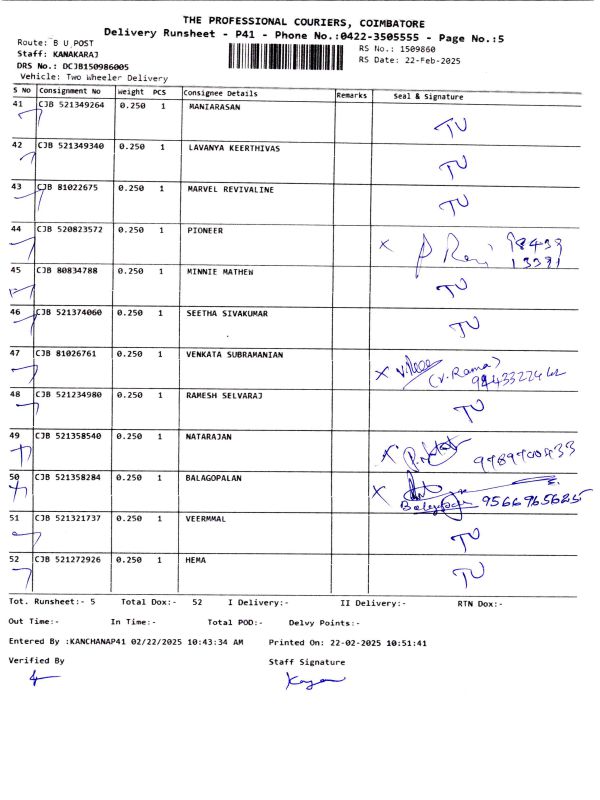 THE PROFESSIONAL COURIERS, COIMBATORE
Delivery Runsheet - P41 - Phone No.:0422-3505555 - Page No.:5
Route: B U_POST
RS No.: 1509860
Staff: KANAKARAJ
RS Date: 22-Feb-2025
DRS No.: DCJB150986005
Vehicle: Two Wheeler Delivery
S No Consignment No Weight PCS Consignee Details Remarks Seal & Signature
41 CJB 521349264 0.250 1 MANIARASAN
TU
42 CJB 521349340 0.250 1 LAVANYA KEERTHIVAS
TU
43 CJB 81022675 0.250 1 MARVEL REVIVALINE
TU
44 CJB 520823572 0.250 1 PIONEER
X
45 CJB 80834788 0.250 1 MINNIE MATHEW
TU
46 CJB 521374060 0.250 1 SEETHA SIVAKUMAR
TU
47 CJB 81026761 0.250 1 VENKATA SUBRAMANIAN
X (V. Rama)
48 CJB 521234980 0.250 1 RAMESH SELVARAJ
TU
49 CJB 521358540 0.250 1 NATARAJAN
X
50 CJB 521358284 0.250 1 BALAGOPALAN
X 9566965625
51 CJB 521321737 0.250 1 VEERMMAL
TU
52 CJB 521272926 0.250 1 HEMA
TU
Tot. Runsheet:- 5 Total Dox:- 52 I Delivery:- II Delivery:- RTN Dox:-
Out Time:- In Time:- Total POD:- Delvy Points:-
Entered By :KANCHANAP41 02/22/2025 10:43:34 AM Printed On: 22-02-2025 10:51:41
Verified By Staff Signature